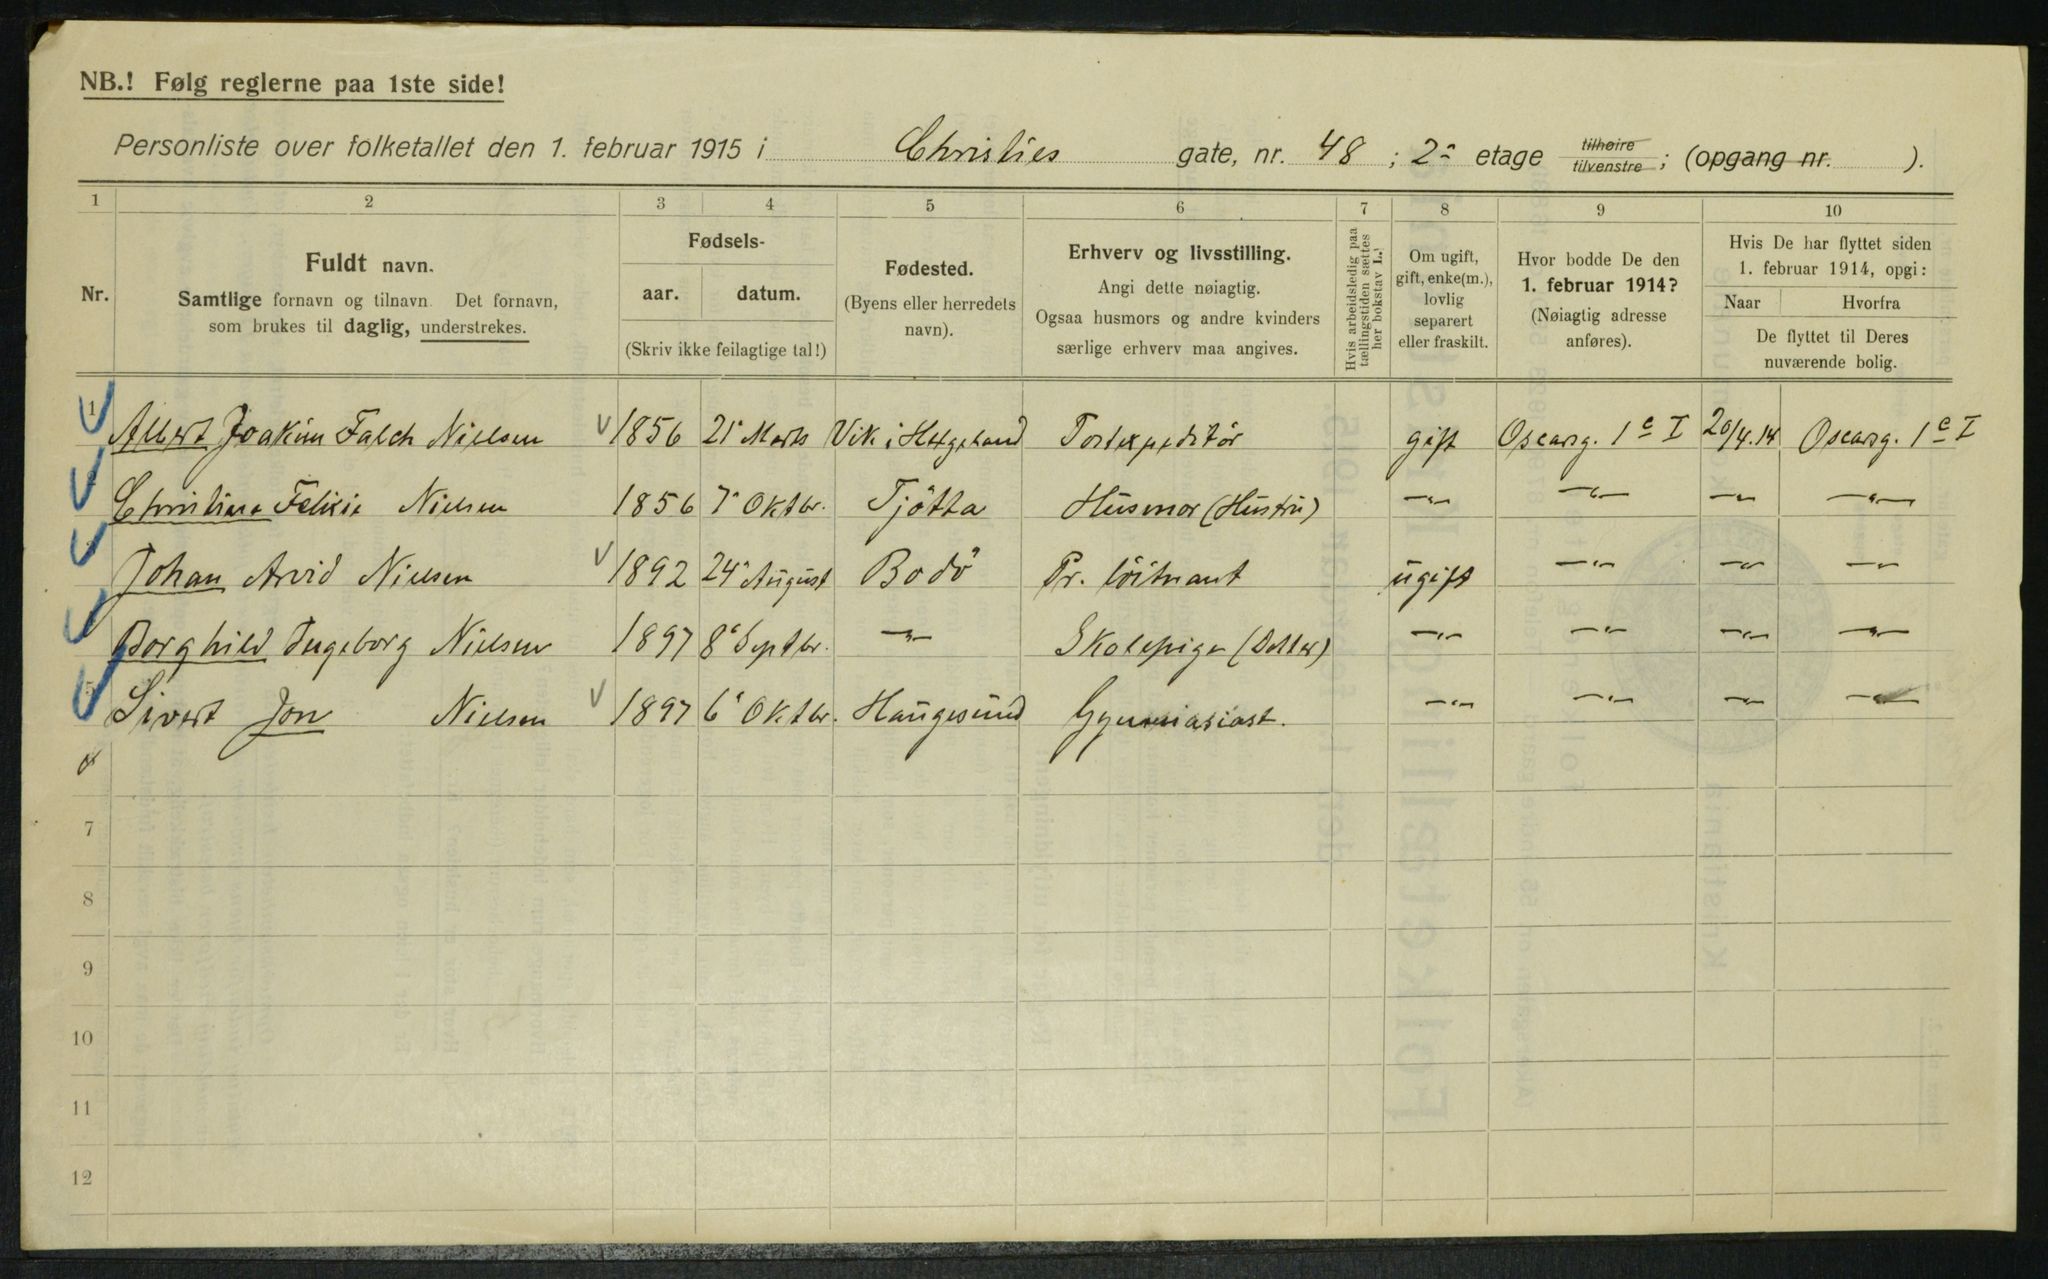 NB.! Følg reglerne paa 1ste side!
Personliste over folketallet den 1. februar 1915 i Christies gate, nr. 48 ; 2- etage tilhøire tilvenstre ; (opgang nr. ).
1 2 3 4 5 6 7 8 9 10
Nr.
Fuldt navn.
Samtlige fornavn og tilnavn. Det fornavn,
som brukes til daglig, understrekes.
Fødsels-
aar. datum.
(Skriv ikke feilagtige tal!)
Fødested.
(Byens eller herredets
navn).
Erhverv og livsstilling.
Angi dette nøiagtig.
Ogsaa husmors og andre kvinders
særlige erhverv maa angives.
Hvis arbeidsledig paa
tællingstiden sættes
her bokstav L.!
Om ugift,
gift, enke(m.),
lovlig
separert
eller fraskilt.
Hvor bodde De den
1. februar 1914?
(Nøiagtig adresse
anføres).
Hvis De har flyttet siden
1. februar 1914, opgi:
Naar Hvorfra
De flyttet til Deres
nuværende bolig.
1 Albert Joakim Falch Nielsen 1856 21 Marts Vik i Helgeland Postexpeditör gift Oscarsg. 1 c I 20/4.14 Oscarsg. 1 c I
Christiane Felixie Nielsen 1856 7 Oktbr. Tjötta Husmor (Hustru) —"— —"— —"— —"—
Johan Arvid Nielsen 1892 24 August Bodö Pr. löitnant ugift —"— —"— —"—
Borghild Ingeborg Nielsen 1897 8 Septbr. —"— Skolepige (Datter) —"— —"— —"— —"—
5 Sivert Jon Nielsen 1897 6 Oktbr. Haugesund Gymnasiast. —"— —"— —"— —"—
7
8
9
10
11
12